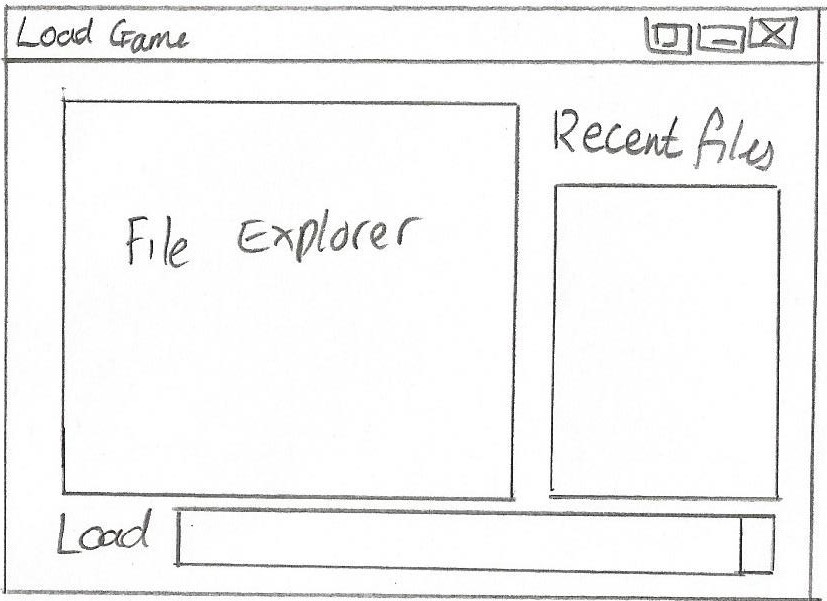 Load Game
File Explorer
Recent files
Load